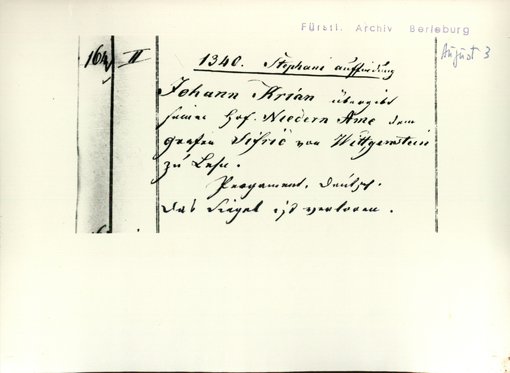 Fürstl. Archiv Berleburg
August 3
164 II
1340. Stephani auffindung
Johann Krian übergibt
seinen Hof Niedern Ame dem
grafen Sifrid von Wittgenstein
zu Lehn.
Pergament, deutsch.
das Siegel ist verloren.